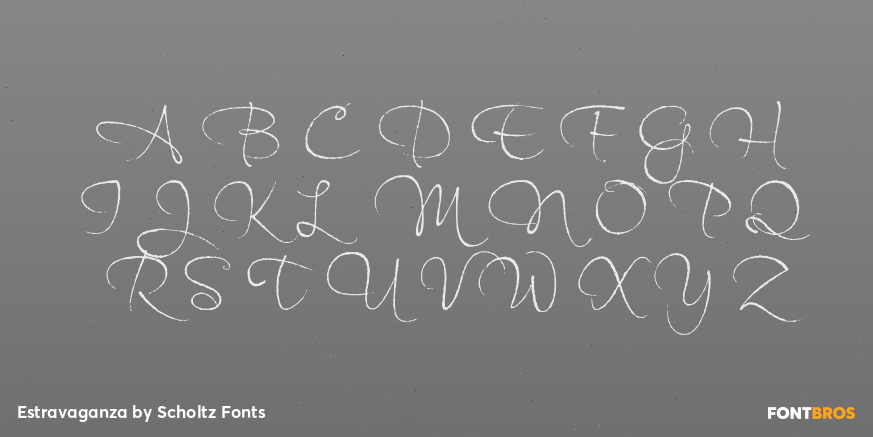 A B C D E F G H
I J K L M N O P Q
R S T U V W X Y Z
Estravaganza by Scholtz Fonts
FONTBROS